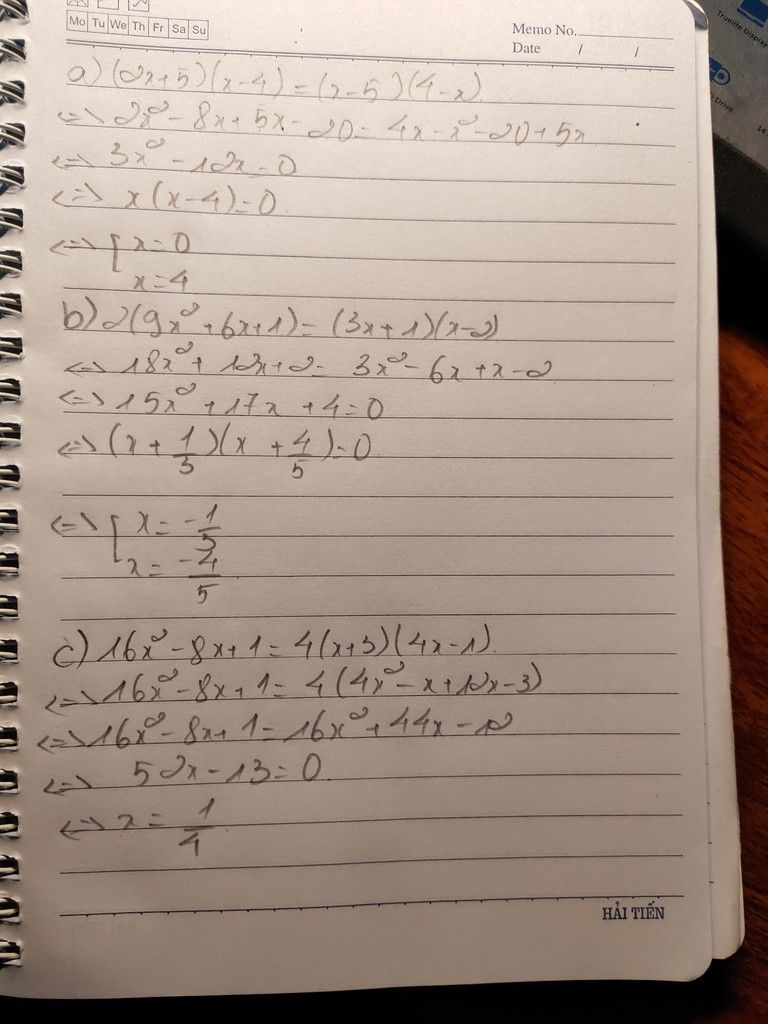 Mo Tu We Th Fr Sa Su
Memo No.
Date / /
a) (2x+5)(x-4) = (x-5)(4-x)
<=> 2x² - 8x + 5x - 20 = 4x - x² - 20 + 5x
<=> 3x² - 12x = 0
<=> x(x-4) = 0
<=> [ x = 0
x = 4
b) 2(9x² + 6x + 1) = (3x + 1)(x - 2)
<=> 18x² + 12x + 2 = 3x² - 6x + x - 2
<=> 15x² + 17x + 4 = 0
<=> (x + 1/3)(x + 4/5) = 0
<=> [ x = -1/3
x = -4/5
c) 16x² - 8x + 1 = 4(x+3)(4x-1)
<=> 16x² - 8x + 1 = 4(4x² - x + 12x - 3)
<=> 16x² - 8x + 1 = 16x² + 44x - 12
<=> 52x - 13 = 0
<=> x = 1/4
HẢI TIẾN
Truelife Display
Drive